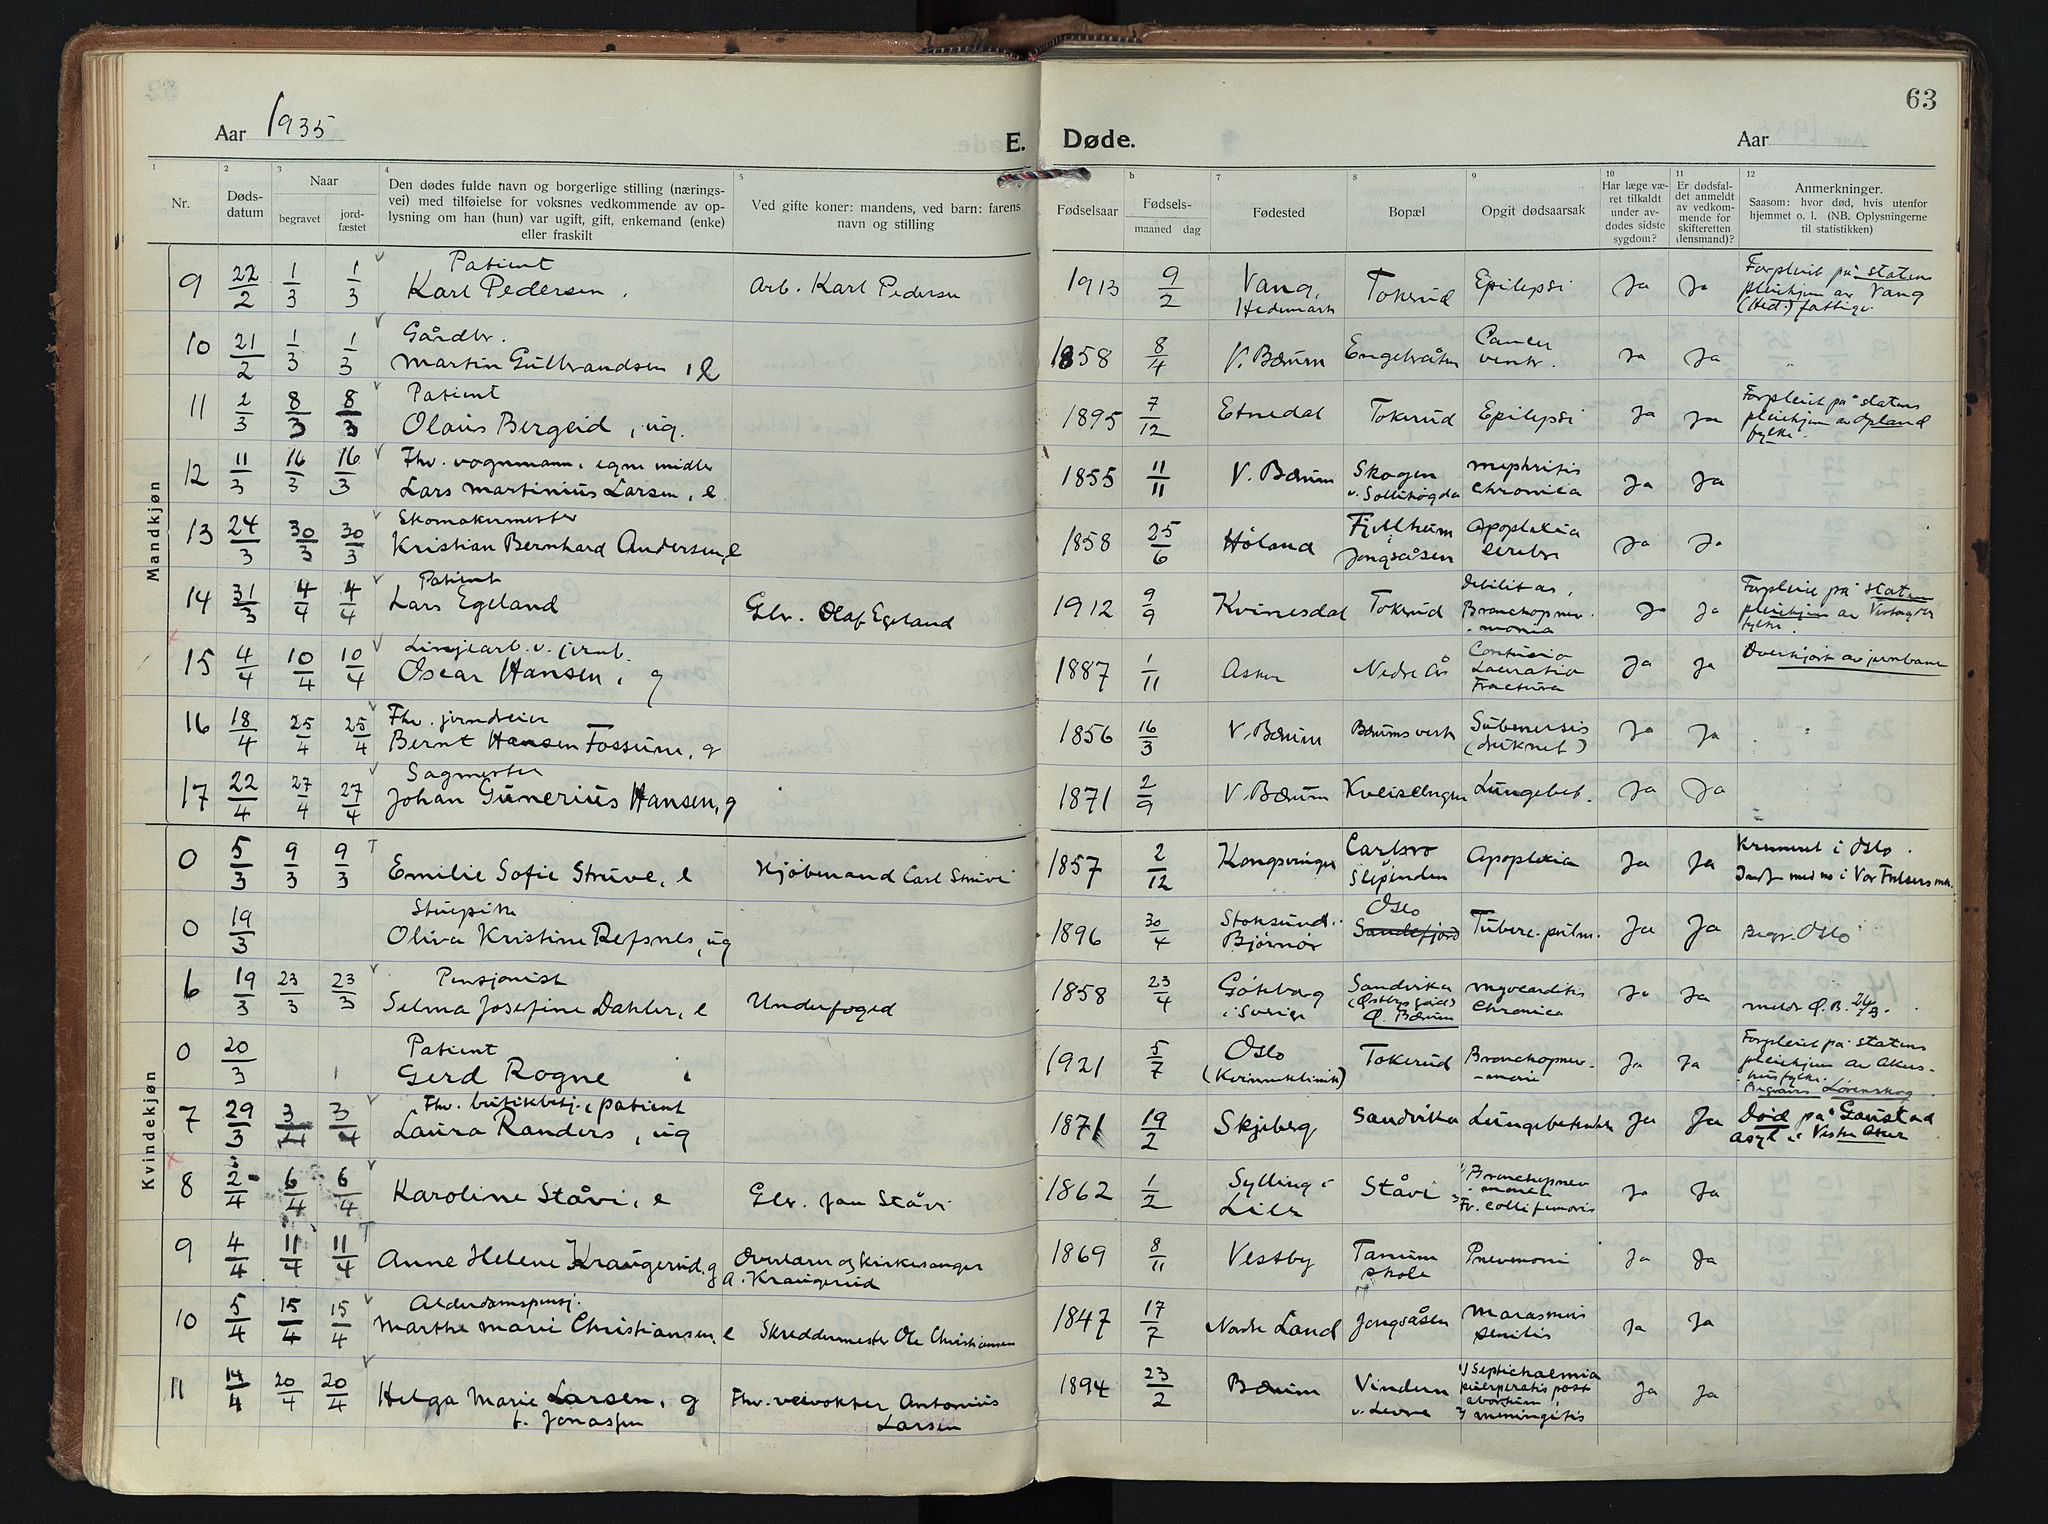 63
Aar 1935
E. Døde.
Aar
1 2 3 4 5 b 7 8 9 10 11 12
Nr.
Døds-
datum
Naar
begravet
jord-
fæstet
Den dødes fulde navn og borgerlige stilling (nærings-
vei) med tilføielse for voksnes vedkommende av op-
lysning om han (hun) var ugift, gift, enkemand (enke)
eller fraskilt
Ved gifte koner: mandens, ved barn: farens
navn og stilling
Fødselsaar
Fødsels-
maaned dag
Fødested
Bopæl
Opgit dødsaarsak
Har læge væ-
ret tilkaldt
under av-
dødes sidste
sygdom?
Er dødsfal-
det anmeldt
av vedkom-
mende for
skifteretten
(lensmand)?
Anmerkninger.
Saasom: hvor død, hvis utenfor
hjemmet o. l. (NB. Oplysningerne
til statistikken)
Mandkjøn
9 22/2 1/3 1/3 Patient
Karl Pedersen. Arb. Karl Pedersen 1913 9/2 Vang, Hedemark Tokerud Epilepsi Ja Ja Forpleiet på statens
pleiehjem av Vang
(Hed.) fattigv.
10 21/2 1/3 1/3 Gårdbr.
Martin Gulbrandsen, e 1858 8/4 V. Bærum Cancer
ventr. Ja Ja
11 2/3 8/3 8/3 Patient
Olaus Bergeid, ug. 1895 7/12 Etnedal Tokerud Epilepsi Ja Ja Forpleiet på statens
pleiehjem av Opland
fylke.
12 11/3 16/3 16/3 Fhv. vognmann, egne midler
Lars Martinius Larsen, e 1855 11/11 V. Bærum Skogen
v. Sollihøgda nephritis
chronica Ja Ja
13 24/3 30/3 30/3 Skomakermester
Kristian Bernhard Andersen, e 1858 25/6 Høland Fjellheim
Jongsåsen Apoplexia
cerebri Ja Ja
14 31/3 4/4 4/4 Patient
Lars Egeland Gbr. Olaf Egeland 1912 9/9 Kvinesdal Tokerud Debilitas,
Bronchopnev-
monia Ja Ja Forpleiet på statens
pleiehjem av Vestagder
fylke.
15 4/4 10/4 10/4 Linjearb. v. jernb.
Oscar Hansen, g 1887 1/11 Asker Nedre Ås Contusio
Laceratio
Fractura Ja Ja Overkjørt av jernbane
16 18/4 25/4 25/4 Fhv. jerndreier
Bernt Hansen Fossum, g 1856 16/3 V. Bærum Bærums verk Submersio
(druknet) Ja Ja
17 22/4 27/4 27/4 Sagmester
Johan Gunerius Hansen, g 1871 2/9 V. Bærum Lungebet. Ja Ja
Kvindekjøn
0 5/3 9/3 9/3 Emilie Sofie Struve, e Kjøbmand Carl Struve 1857 2/12 Kongsvinger Carlsro
Slependen Apoplexia Ja Ja Kremert i Oslo.
0 19/3 Stuepike
Oliva Kristine Refsnes, ug 1896 30/4 Stoksund i
Bjørnør Oslo
Sandefjord Tuberc. pulm. Ja Ja Begr. Oslo
6 19/3 23/3 23/3 Pensjonist
Selma Josefine Dahler, e Underfoged 1858 23/4 Göteborg
i Sverige Sandvika
(Østbys gård)
Ø. Bærum myocarditis
chronica Ja Ja meldt Ø. B. 26/3.
0 20/3 Patient
Gerd Rogne 1921 5/7 Oslo
(Kvinneklinik) Tokerud Bronchopnev-
moni Ja Ja Forpleiet på statens
pleiehjem av Akers-
hus fylke.
Begraves Lørenskog.
7 29/3 3/4 3/4 Fhv. butikbetj., patient
Laura Randers, ug 1871 19/2 Skjeberg Sandvika Lungebetendelse Ja Ja Død på Gaustad
asyl i Vestre Aker
8 2/4 6/4 6/4 Karoline Ståvi, e Gbr. Jan Ståvi 1862 1/2 Sylling i
Lier Ståvi 1) Bronchopnev-
moni
2) Fr. colli femoris Ja Ja
9 4/4 11/4 11/4 Anne Helene Kraugerud, g Overlærer og kirkesanger
A. Kraugerud 1869 8/11 Vestby Tanum
skole Pnevmoni Ja Ja
10 5/4 15/4 15/4 Alderdomspensj.
Marthe Marie Christiansen, e Skreddermester Ole Christiansen 1847 17/7 Nordre Land Jongsåsen Marasmus
senilis Ja Ja
11 14/4 20/4 20/4 Helga Marie Larsen, g
f. Jonassen Fhv. veivokter Antonius
Larsen 1894 23/2 Bærum Vindern
v. Levre 1) Septichaemia
puerperalis post
abortum
2) meningitis Ja Ja